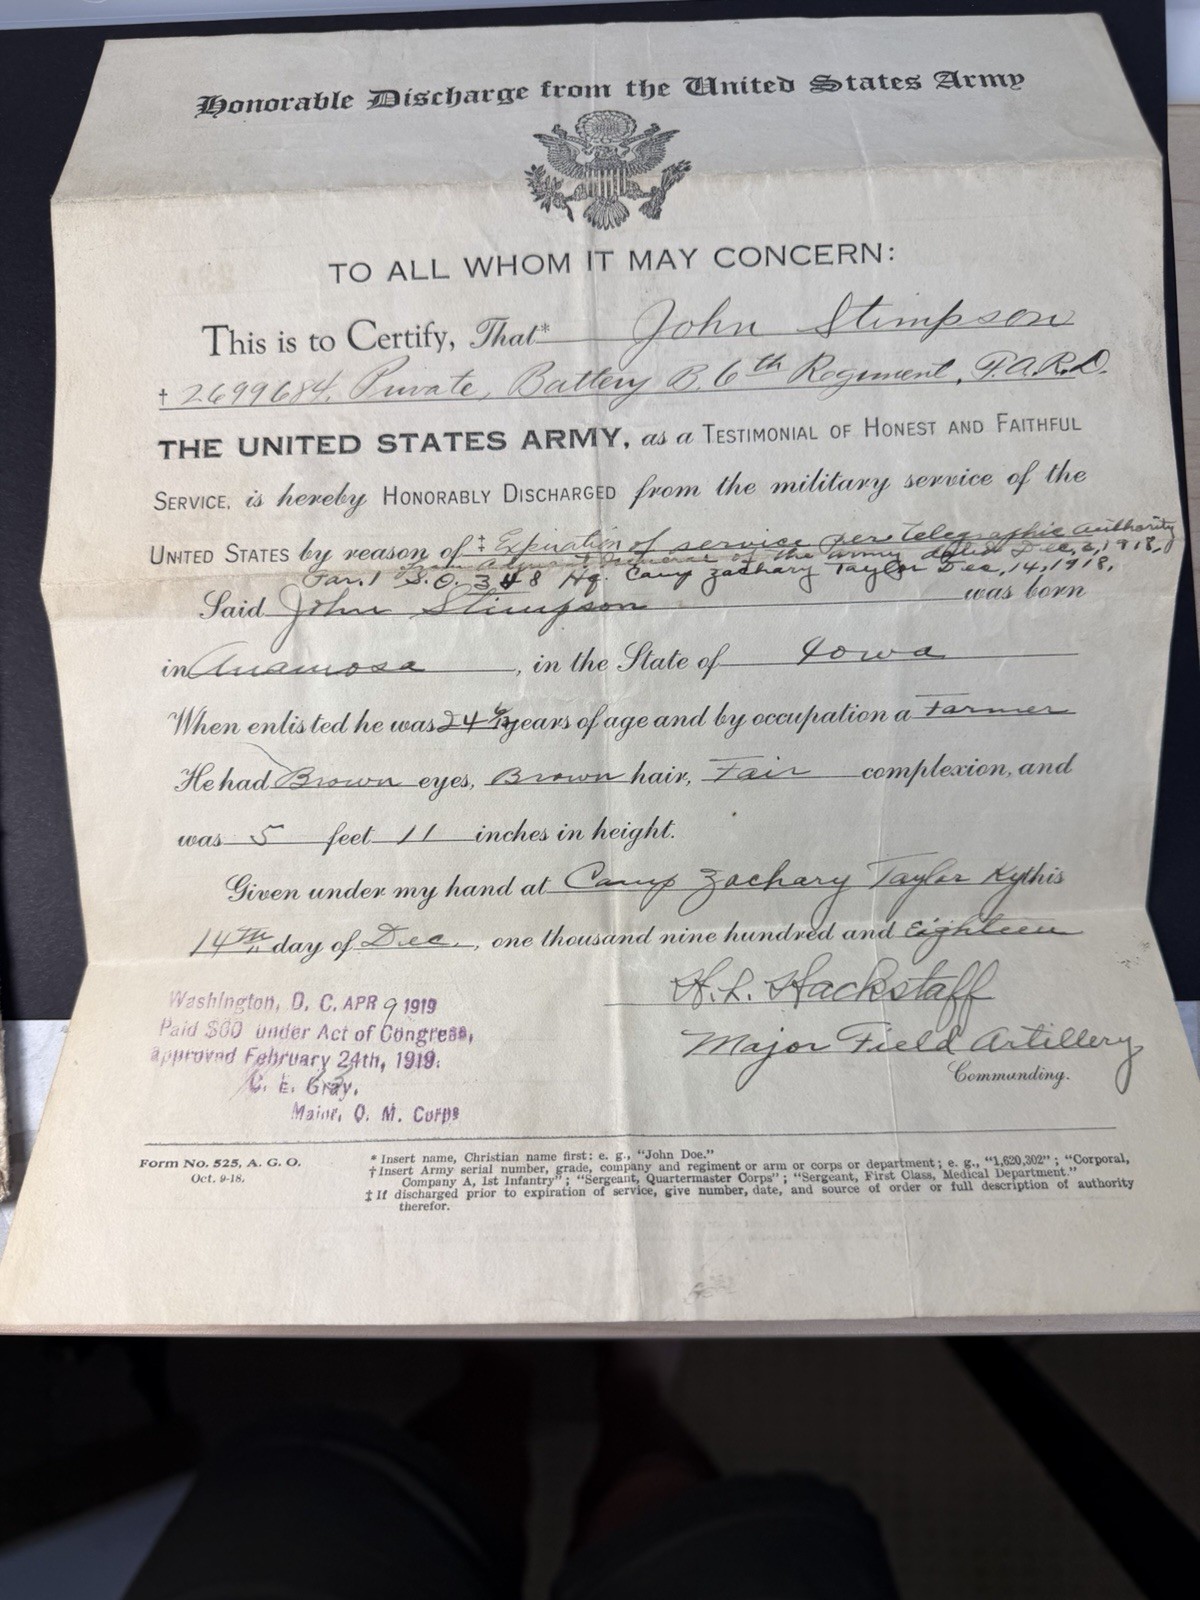 Honorable Discharge from the United States Army
TO ALL WHOM IT MAY CONCERN:
This is to Certify, That* John Stimpson
† 2699684, Private, Battery B, 6th Regiment, F.A.R.D.
THE UNITED STATES ARMY, as a TESTIMONIAL OF HONEST AND FAITHFUL
SERVICE, is hereby HONORABLY DISCHARGED from the military service of the
UNITED STATES by reason of ‡ Expiration of service per telegraphic authority
from Adjutant General of the army dated Dec, 3, 1918,
Par. 1 S.O. 348 Hq. Camp Zachary Taylor Dec, 14, 1918,
Said John Stimpson was born
in Anamosa, in the State of Iowa
When enlisted he was 24 years of age and by occupation a Farmer
He had Brown eyes, Brown hair, Fair complexion, and
was 5 feet 11 inches in height.
Given under my hand at Camp Zachary Taylor Ky this
14TH day of Dec., one thousand nine hundred and Eighteen
H. L. Hackstaff
Major Field Artillery
Commanding.
Washington, D. C. APR 9 1919
Paid $60 under Act of Congress,
approved February 24th, 1919.
C. E. Gray,
Major, Q. M. Corps
Form No. 525, A. G. O.
Oct. 9-18.
* Insert name, Christian name first: e. g., "John Doe."
† Insert Army serial number, grade, company and regiment or arm or corps or department; e. g., "1,620,302"; "Corporal,
Company A, 1st Infantry"; "Sergeant, Quartermaster Corps"; "Sergeant, First Class, Medical Department."
‡ If discharged prior to expiration of service, give number, date, and source of order or full description of authority
therefor.